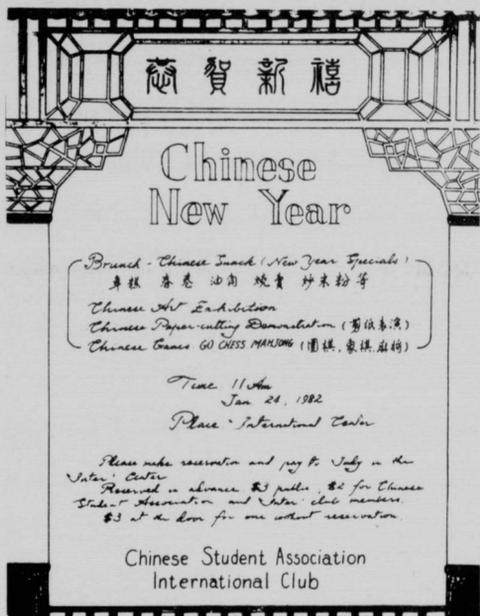 恭賀新禧
Chinese
New Year
Brunch - Chinese Snack (New Year Specials)
春卷 油角 燒賣 炒米粉 等
Chinese Art Exhibition
Chinese Paper-cutting Demonstration (剪紙表演)
Chinese Games. GO CHESS, MAHJONG (圍棋, 象棋, 麻將)
Time 11 Am
Jan. 24, 1982
Place - International Center
Please make reservation and pay to Judy in the
"Inter" Center
Reserved in advance $3 public, $2 for Chinese
Student Association and "Inter" club members.
$3 at the door for one without reservation.
Chinese Student Association
International Club